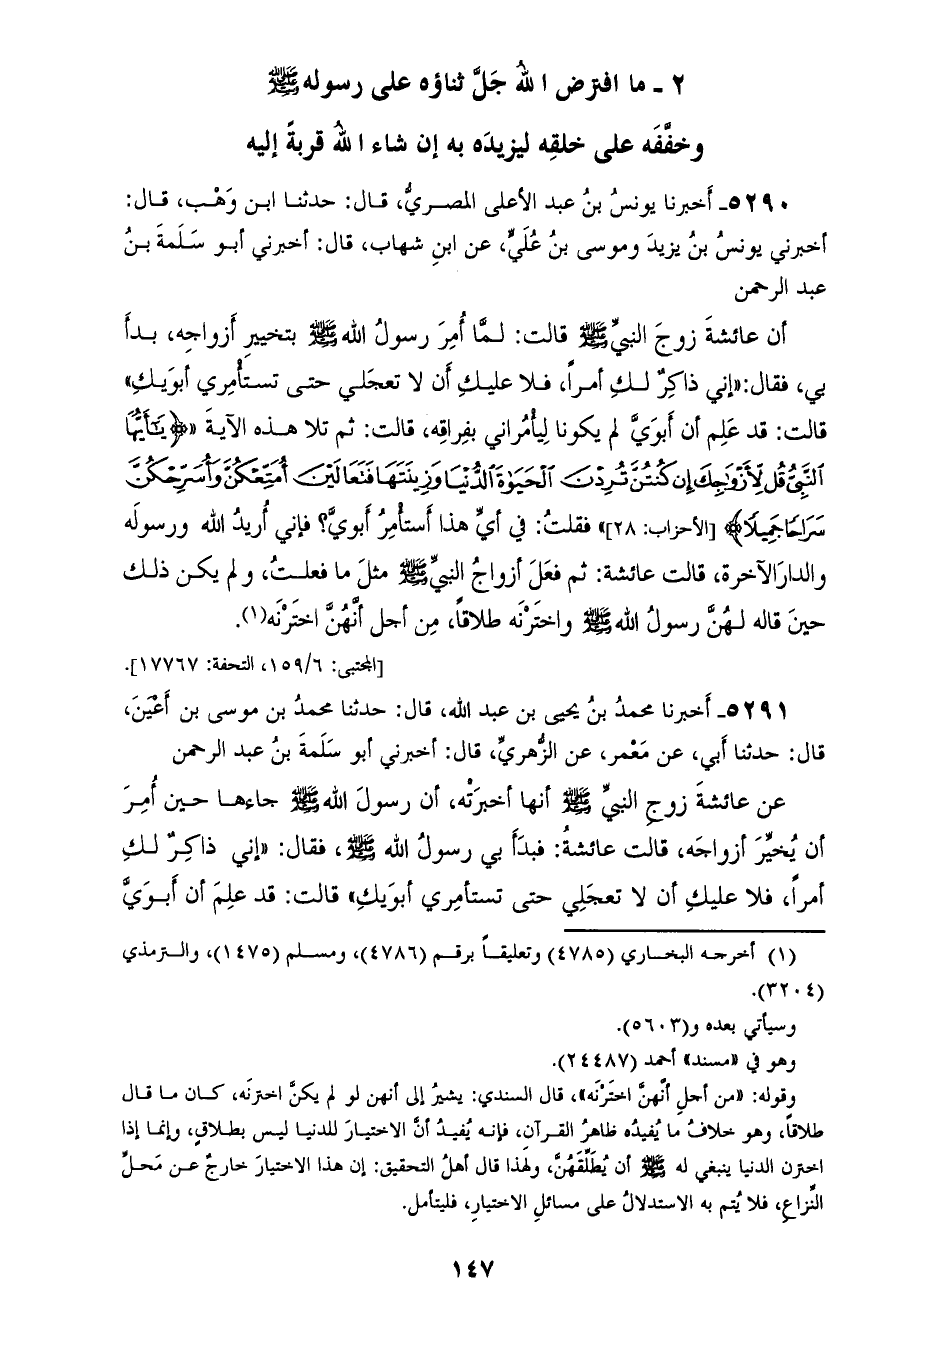 ٢ ـ ما افترض الله جَلَّ ثناؤه على رسوله ﷺ
وخفَّفَه على خلقِه ليزيدَه به إن شاء الله قربةً إليه
٥٢٩٠ـ أَخبرنا يونسُ بنُ عبد الأعلى المصريُّ، قال: حدثنا ابن وَهْب، قال:
أخبرني يونسُ بنُ يزيدَ وموسى بنُ عُلَيٍّ، عن ابنِ شهاب، قال: أخبرني أبو سَلَمةَ بنُ
عبد الرحمن
أن عائشةَ زوجَ النبيِّ ﷺ قالت: لـمَّا أُمِرَ رسولُ الله ﷺ بتخييرِ أَزواجِه، بدأَ
بي، فقال: «إني ذاكِرٌ لكِ أمراً، فلا عليكِ أَن لا تعجَلي حتى تستأْمِري أبوَيكِ»
قالت: قد عَلِم أن أَبوَيَّ لم يكونا لِيأْمُراني بفِراقِه، قالت: ثم تلا هذه الآيةَ «﴿يَٰٓأَيُّهَا
ٱلنَّبِىُّ قُل لِّأَزْوَٰجِكَ إِن كُنتُنَّ تُرِدْنَ ٱلْحَيَوٰةَ ٱلدُّنْيَا وَزِينَتَهَا فَتَعَالَيْنَ أُمَتِّعْكُنَّ وَأُسَرِّحْكُنَّ
سَرَاحًا جَمِيلًا﴾ [الأحزاب: ٢٨]» فقلتُ: في أيِّ هذا أَستأْمِرُ أبويَّ؟ فإني أُريدُ الله ورسولَه
والدارَ الآخرة، قالت عائشة: ثم فعَلَ أزواجُ النبيِّ ﷺ مثلَ ما فعلتُ، ولم يكن ذلك
حينَ قاله لـهُنَّ رسولُ الله ﷺ واختَرْنَه طلاقاً، مِن أجل أنَّهُنَّ اختَرْنَه(١).
[المجتبى: ١٥٩/٦، التحفة: ١٧٧٦٧].
٥٢٩١ـ أَخبرنا محمدُ بنُ يحيى بن عبد الله، قال: حدثنا محمدُ بن موسى بن أَعْيَنَ،
قال: حدثنا أبي، عن مَعْمر، عن الزُّهريِّ، قال: أخبرني أبو سَلَمةَ بنُ عبد الرحمن
عن عائشةَ زوجِ النبيِّ ﷺ أنها أخبرَتْه، أن رسولَ الله ﷺ جاءها حين أُمِرَ
أن يُخيِّرَ أزواجَه، قالت عائشةُ: فبدَأَ بي رسولُ الله ﷺ، فقال: «إني ذاكِرٌ لكِ
أمراً، فلا عليكِ أن لا تعجَلِي حتى تستأمِري أبوَيكِ» قالت: قد علِمَ أن أَبوَيَّ
(١) أخرجه البخاري (٤٧٨٥) وتعليقاً برقم (٤٧٨٦)، ومسلم (١٤٧٥)، والترمذي
(٣٢٠٤).
وسيأتي بعده و(٥٦٠٣).
وهو في «مسند» أحمد (٢٤٤٨٧).
وقوله: «من أجلِ أنَّهنَّ اختَرْنَه»، قال السندي: يشيرُ إلى أنهن لو لم يكنَّ اخترنَه، كان ما قال
طلاقاً، وهو خلافُ ما يُفيدُه ظاهرُ القرآنِ، فإنه يُفيدُ أنَّ الاختيارَ للدنيا ليس بطلاقٍ، وإنما إذا
اخترن الدنيا ينبغي له ﷺ أن يُطَلِّقَهُنَّ، ولهذا قال أهلُ التحقيق: إن هذا الاختيارَ خارجٌ عن مَحلِّ
النِّزاعِ، فلا يُتم به الاستدلالُ على مسائلِ الاختيارِ، فليتأمل.
١٤٧